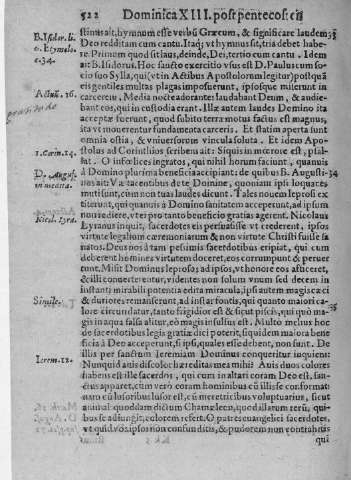 522 Dominica XIII. post pentecostē
stimis ait, hymnum esse verbū Græcum, & significare laudem
Deo redditam cum cantu. Itaq; vt hymnus sit, tria debet habe-
re. Primum quod sit laus, deinde, Dei, tertio cum cantu. Idem
ait B. Isidorus. Hoc sancto exercitio vsus est D. Paulus cum so
cio suo Sylla, qui (vt in Actibus Apostolorum legitur) postquā
eis gentiles multas plagas imposuerunt, ipsosque miserunt in
carcerem, Media nocte adorantes laudabant Deum, & audie-
bant eos, qui in custodia erant. Illæ autem laudes Domino ita
acceptæ fuerunt, quod subito terra motus factus est magnus,
ita vt mouerentur fundamenta carceris. Et statim aperta sunt
omnia ostia, & vniuersorum vincula soluta. Et idem Apo-
stolus ad Corinthios scribens ait: Si quis in morore est, psal-
lat. O infœlices ingratos, qui nihil horum faciunt, quanuis
à Domino plurima beneficia accipiant: de quibus B. Augusti-
nus ait: Væ tacentibus de te Domine, quoniam ipsi loquaces
muti sunt, cum non tuas laudes dicunt. Tales nouem leprosi ex
titerunt, qui quanuis à Domino sanitatem acceperunt, ad ipsum
non rediere, vt ei pro tanto beneficio gratias agerent. Nicolaus
Lyranus inquit, sacerdotes eis persuasisse vt crederent, ipsos
virtute legalium cæremoniarum & non virtute Christi fuisse sa
natos. Deus nos à tam pessimis sacerdotibus eripiat, qui cum
deberent homines virtutem docere, eos corrumpunt & peruer
tunt. Misit Dominus leprosos ad ipsos, vt honore eos afficeret,
& illi conuerterentur, videntes non solum vnum sed decem in
instanti mirabili potentia edita miracula, ipsi autem magis cæci
& duriores remanserunt, ad instar fontis, qui quanto maiori ca-
lore circundatur, tanto frigidior est & sicut piscis, qui quò ma-
gis in aqua salsa alitur, eò magis insulsus est. Multo melius hoc
de sacerdotibus legis gratiæ dici poterit, si quidem maiora bene
ficia à Deo acceperunt, si ipsi, quales esse debent, non sunt. De
illis per sanctum Ieremiam Dominus conqueritur inquiens:
Nunquid auis discolor hæreditas mea mihi? Auis duos colores
habens est ille sacerdos, qui cum in altari coram Deo est, san-
ctus apparet, cùm verò coram hominibus cū illis se conformat:
nam cū lusoribus lusor est, cū meretricibus voluptuarius, sicut
animal quoddam dictum Chamæleon, quod illarum rerū, qui-
bus se adiungit, colorem refert. O patres euangelici sacerdotes,
vt quid vos ipsos non confunditis, & pudorem non contrahitis
qui
B. Isidor. li.
6. Etymolo.
c. 34.
Actuū. 16.
1. Corin. 14.
D. August.
in medita.
Nicol. Lyra.
Simile.
Ierem. 12.
33
34
35